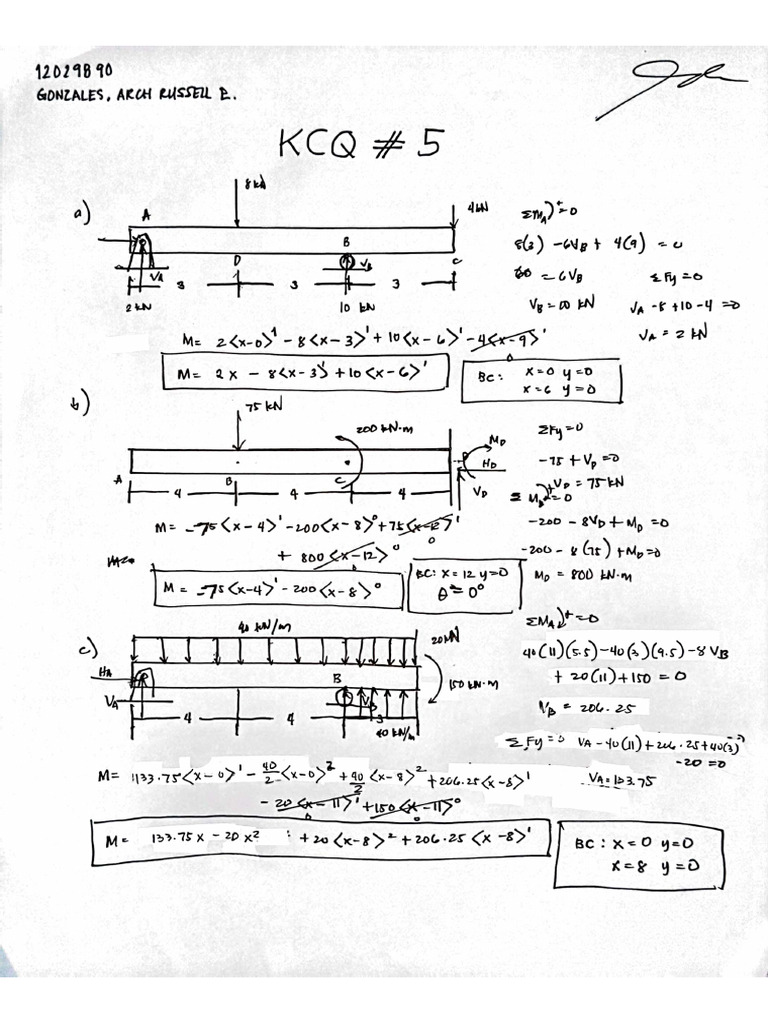 12029890
GONZALES, ARCH RUSSELL E.
KCQ # 5
a)
8 kN
4kN
A
B
D
C
VA
VB
3 3 3
2 kN
10 kN
ΣMA)⁺=0
8(3) -6VB + 4(9) = 0
60 = 6VB
ΣFy=0
VB = 10 kN
VA -8 +10 -4 =0
VA = 2 kN
M= 2<x-0>¹ -8<x-3>¹ +10<x-6>¹ -4<x-9>¹
0
M= 2x - 8<x-3>¹ +10<x-6>¹
BC: x=0 y=0
x=6 y=0
b)
75 kN
200 kN·m
MD
HD
VD
A B C D
4 4 4
ΣFy=0
-75 + VD =0
VD = 75 kN
Σ MD)⁺=0
-200 - 8VD + MD =0
-200 - 8(75) +MD=0
MD = 800 kN-m
M= -75<x-4>¹ -200<x-8>⁰ +75<x-12>¹
0
+ 800<x-12>⁰
0
M = -75<x-4>¹ -200<x-8>⁰
BC: x=12 y=0
θ=0°
c)
40 kN/m
20kN
HA
VA
B
VB
150 kN-m
4 4 3
40 kN/m
ΣMA)⁺=0
40(11)(5.5)-40(3)(9.5)-8VB
+ 20(11)+150 = 0
VB = 206.25
ΣFy=0 VA-40(11)+206.25+40(3)
-20 =0
VA=133.75
M= 1133.75<x-0>¹ - 40/2<x-0>² + 40/2<x-8>² +206.25<x-8>¹
-20<x-11>¹ +150<x-11>⁰
0 0
M= 133.75x - 20x² +20<x-8>² +206.25<x-8>¹
BC: x=0 y=0
x=8 y=0